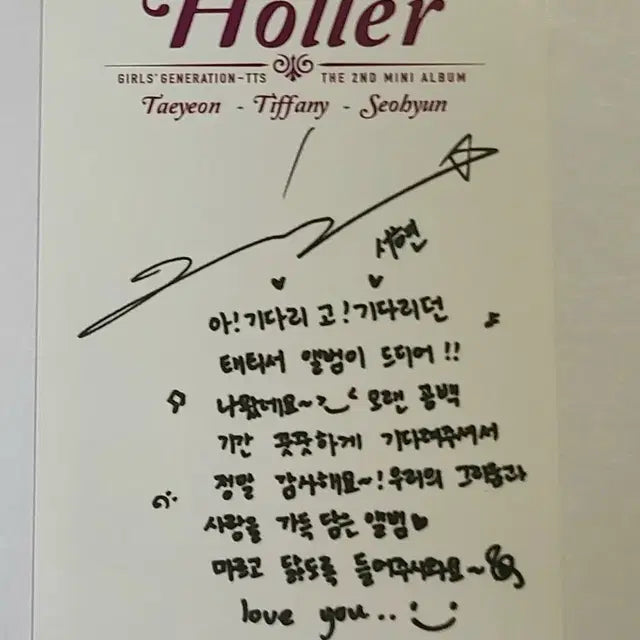 Holler
GIRLS' GENERATION-TTS THE 2ND MINI ALBUM
Taeyeon - Tiffany - Seohyun
서현
아! 기다리 고! 기다리던
태티서 앨범이 드디어!!
나왔네요~ 오랜 공백
기간 꿋꿋하게 기다려주셔서
정말 감사해요~! 우리의 그리움과
사랑을 가득 담은 앨범♥
마르고 닳도록 들어주시와요~
love you..